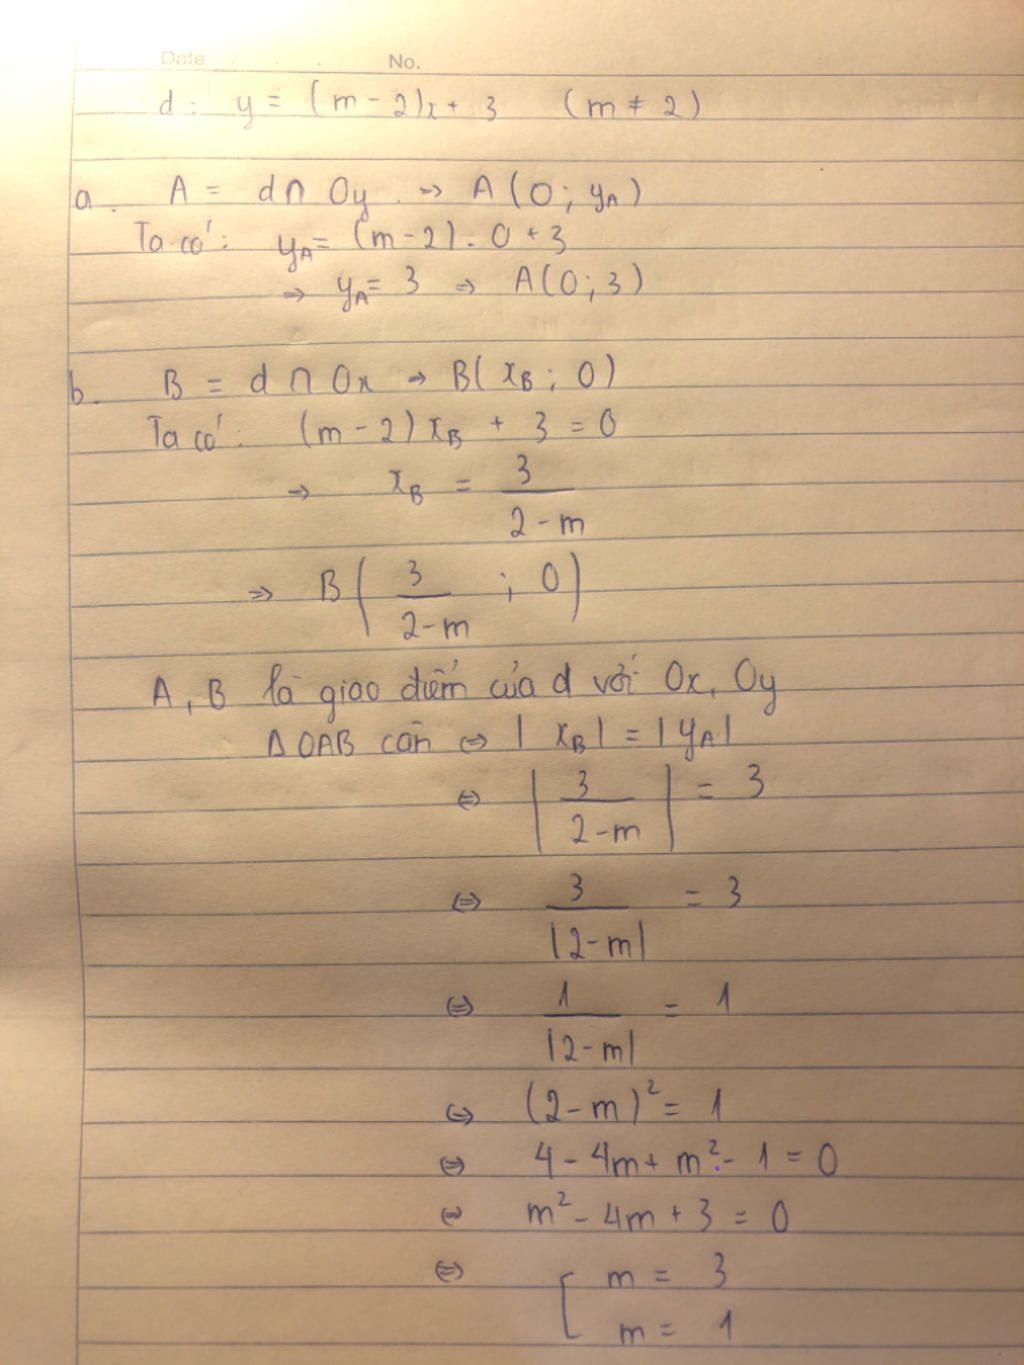 Date No.
d: y = (m - 2)x + 3 (m ≠ 2)
a. A = d ∩ Oy → A(0; yA)
Ta có: yA = (m-2).0 + 3
→ yA = 3 ⇒ A(0; 3)
b. B = d ∩ Ox → B(xB; 0)
Ta có: (m-2)xB + 3 = 0
⇒ xB = 3/(2-m)
⇒ B(3/(2-m); 0)
A, B là giao điểm của d với Ox, Oy
Δ OAB cân ⇔ |xB| = |yA|
⇔ |3/(2-m)| = 3
⇔ 3/|2-m| = 3
⇔ 1/|2-m| = 1
⇔ (2-m)² = 1
⇔ 4 - 4m + m² - 1 = 0
⇔ m² - 4m + 3 = 0
⇔ [ m = 3
m = 1